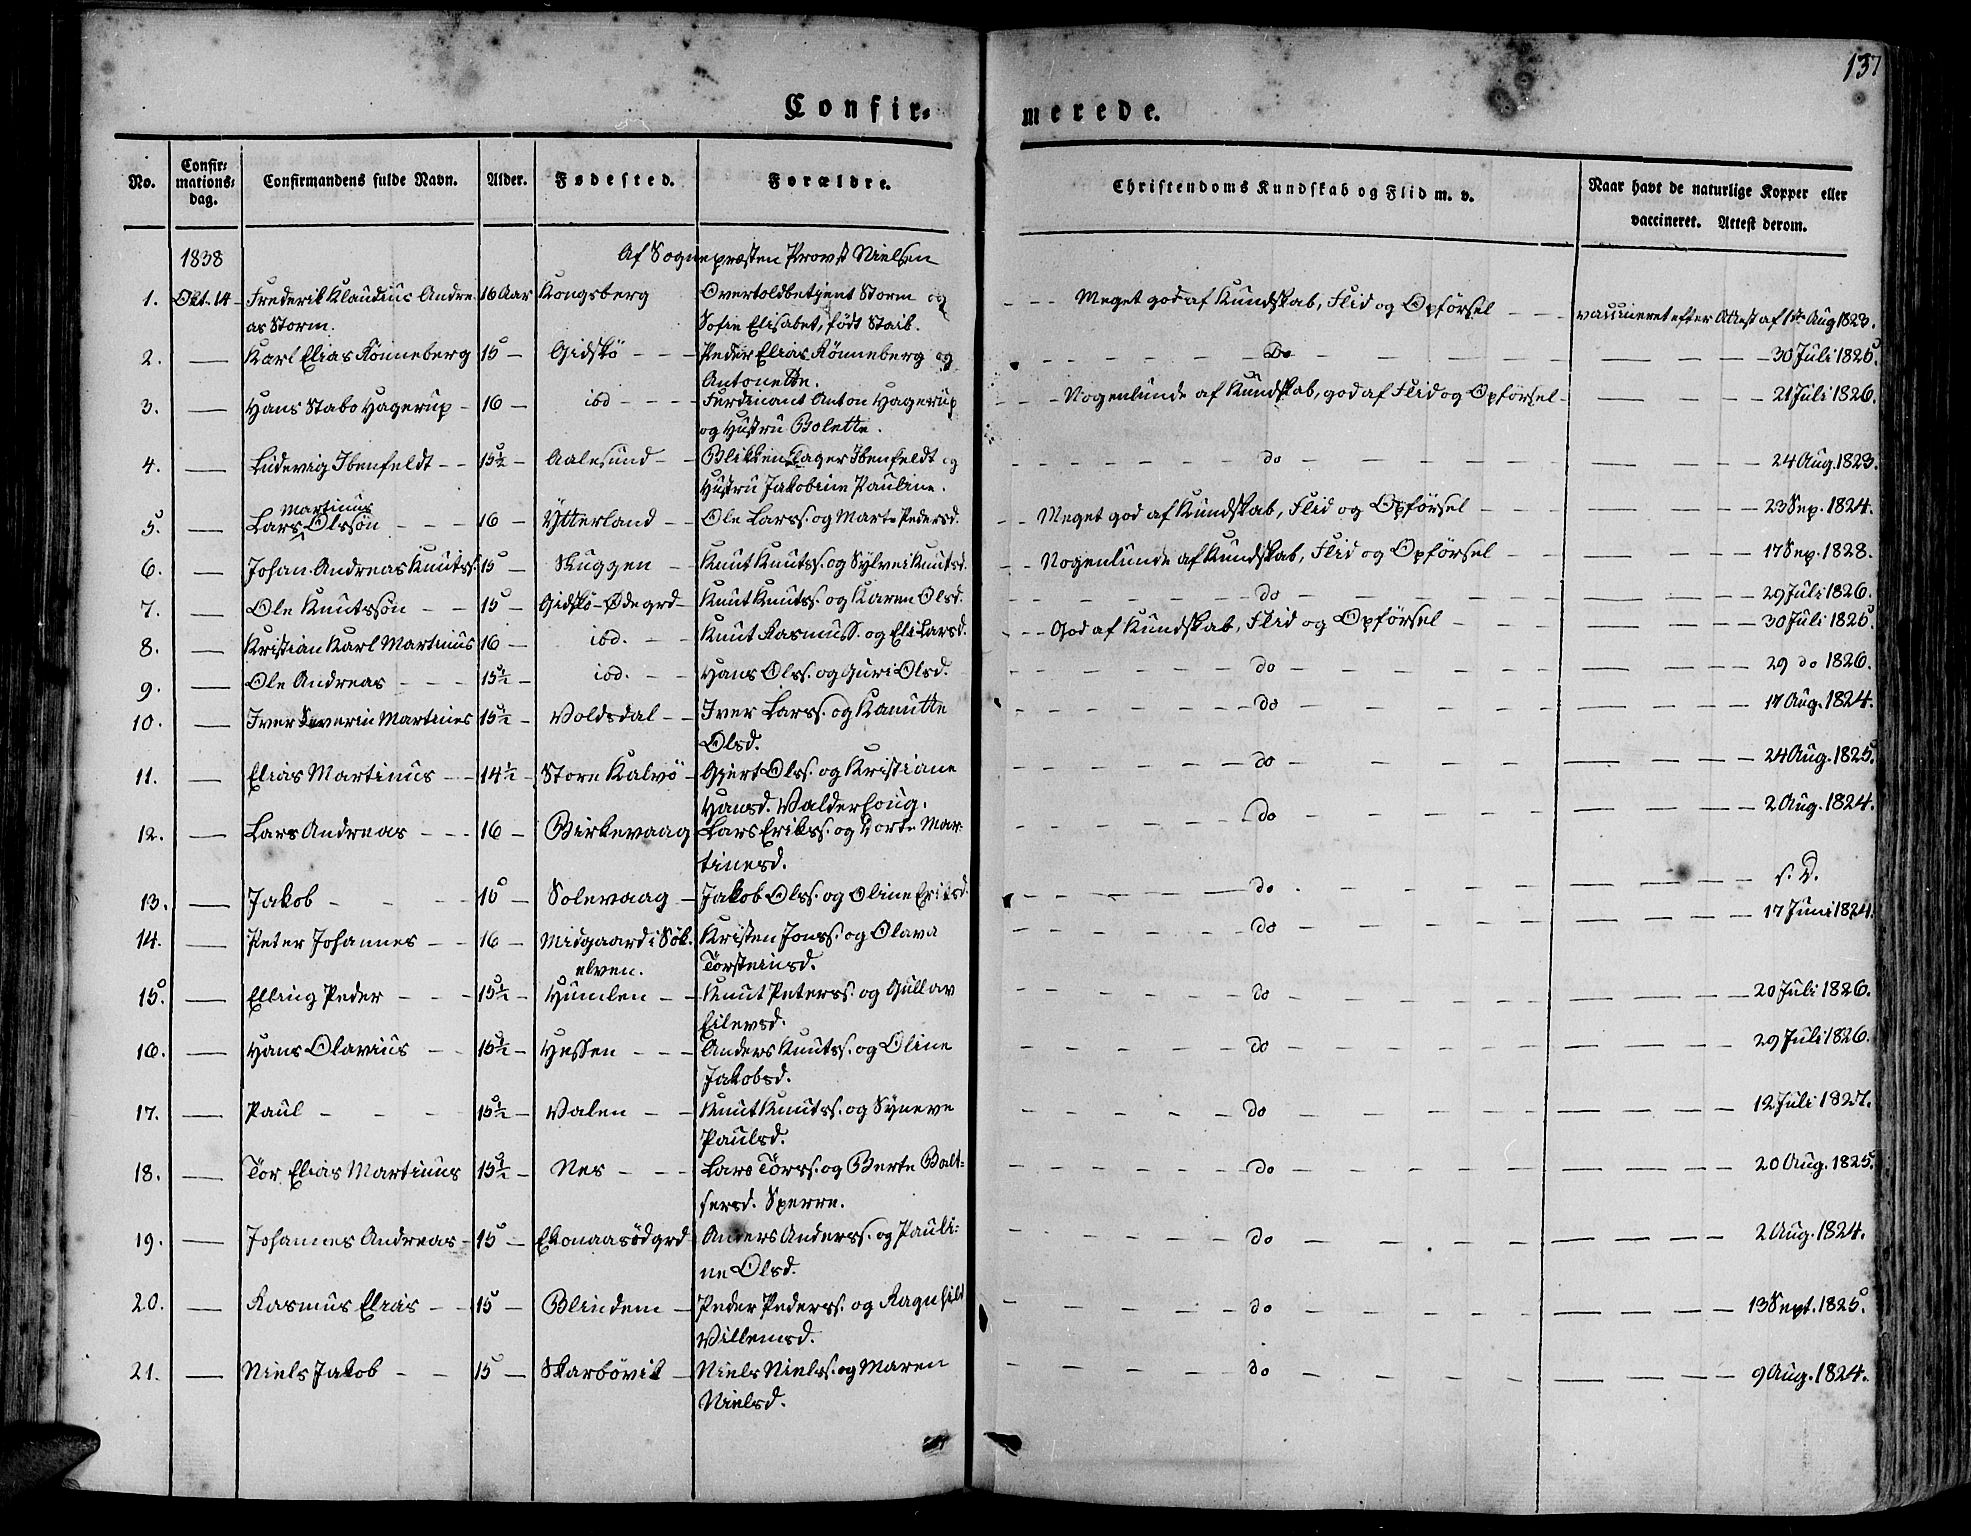 137
Confir- merede.
No. Confir-mations-dag. Confirmandens fulde Navn. Alder. Fødested. Forældre. Christendoms Kundskab og Flid m. v. Naar havt de naturlige Kopper eller vaccineret. Attest derom.
1838 Af Sognepræsten Provst Nielsen
1. Okt. 14 Frederik Klaudius Andre- 16 Aar Kongsberg Overtoldbetjent Storm og - - - Meget god af Kundskab, Flid og Opførsel - - vaccineret efter Attest af 1ste Aug 1823.
as Storm. Sofie Elisabet, født Staib.
2. — Karl Elias Rønneberg 15 — Gidskö - - - Peder Elias Rønneberg og Do 30 Juli 1825.
Antonette.
3. — Hans Stabo Hagerup - 16 - ibd - - - Ferdinant Anton Hagerup - - - Nogenlunde af Kundskab, god af Flid og Opførsel - 21 Juli 1826.
og Hustru Bolette.
4. — Ludevig Ibenfeldt - - 15½ - Aalesund - - Blikkenslager Ibenfeldt og do 24 Aug. 1823.
Hustru Jakobine Pauline.
Martinus
5. — Lars Olssøn - - - 16 - Ytterland - - Ole Larss. og Marte Pedersd. - - Meget god af Kundskab, Flid og Opførsel - - - 23 Sep. 1824.
6. — Johan Andreas Knutss. 15 - Skuggen - Knut Knutss. og Sylvei Knutsd. - - Nogenlunde af Kundskab, Flid og Opførsel - - 17 Sep. 1828.
7. — Ole Knutssøn - - 15 - Gidskö-Ödegrd - Knut Knutss. og Karen Olsd. do 29 Juli 1826.
8. — Kristian Karl Martinus 16 - ibd. - - Knut Rasmuss. og Eli Larsd. - - - God af Kundskab, Flid og Opførsel - - - 30 Juli 1825.
9. — Ole Andreas - - - 15½ - ibd. - - Hans Olss. og Guri Olsd. do 29 do 1826.
10. — Iver Severin Martines 15½ - Voldsdal - - Iver Larss. og Kanutte do 17 Aug. 1824.
Olsd.
11. — Elias Martinus - - 14½ - Store Kalvö - Gjert Olss. og Kristiane do 24 Aug. 1825.
Hansd. Valderhoug.
12. — Lars Andreas - - - 16 - Birkevaag Lars Erikss. og Dorte Mar- do 2 Aug. 1824.
tinesd.
13. — Jakob - - - - 15 - Solevaag - Jakob Olss. og Oline Eriksd. do s. D.
14. — Peter Johannes - - 16 - Midgaard i Søk- Kristen Jonss. og Olava do 17 Juni 1824.
elven. Torsteinsd.
15. — Elling Peder - - - 15½ - Humlen - - Knut Peterss. og Gullav do 20 Juli 1826.
Eilersd.
16. — Hans Olavius - - 15½ - Hessen - - - Anders Knutss. og Oline do 29 Juli 1826.
Jakobsd.
17. — Paul - - - 15½ - Valen - - Knut Knutss. og Syneve do 12 Juli 1827.
Paulsd.
18. — Tor Elias Martinus 15½ - Nes - - - Lars Torss. og Berte Balt- do 20 Aug. 1825.
sersd. Sperre.
19. — Johannes Andreas - 15 - Ekonaasödgrd Anders Anderss. og Pauli- do 2 Aug. 1824.
ne Olsd.
20. — Rasmus Elias - - 15 - Blindem - Peder Pederss. og Ragnhild do 13 Sept. 1825.
Villemsd.
21. — Niels Jakob - - 15 - Skarbövik - Niels Nielss. og Maren do 9 Aug. 1824.
Nielsd.